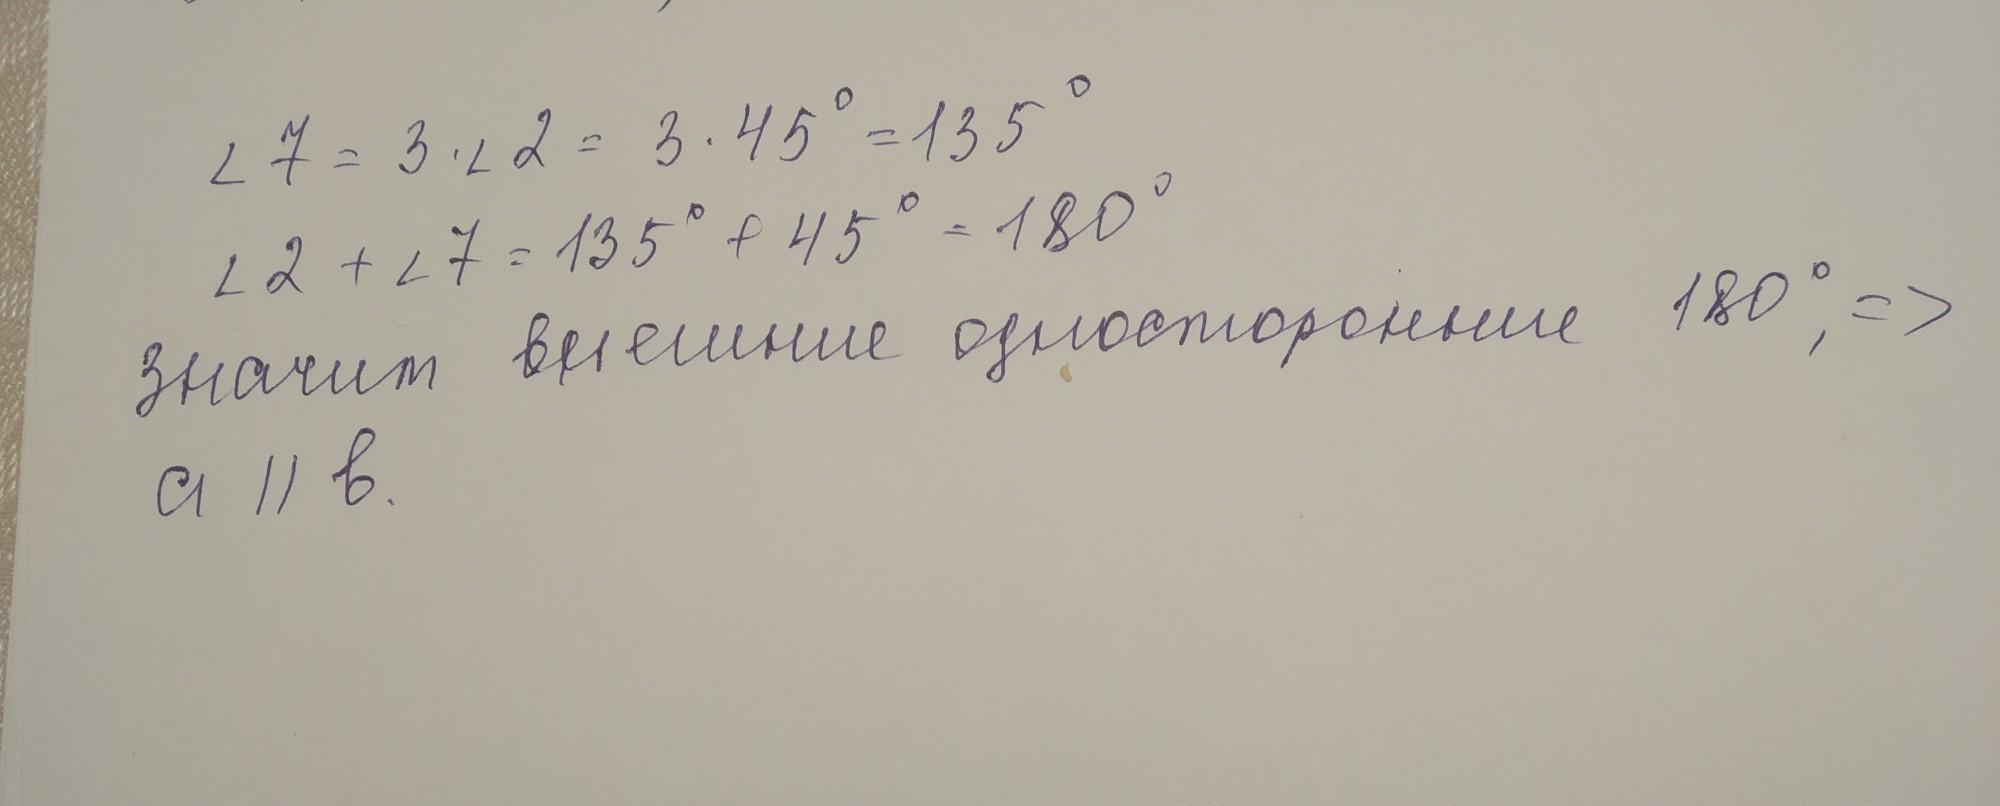 ∠7 = 3·∠2 = 3·45° = 135°
∠2 + ∠7 = 135° + 45° = 180°
значит внешние односторонние 180°, =>
a || в.